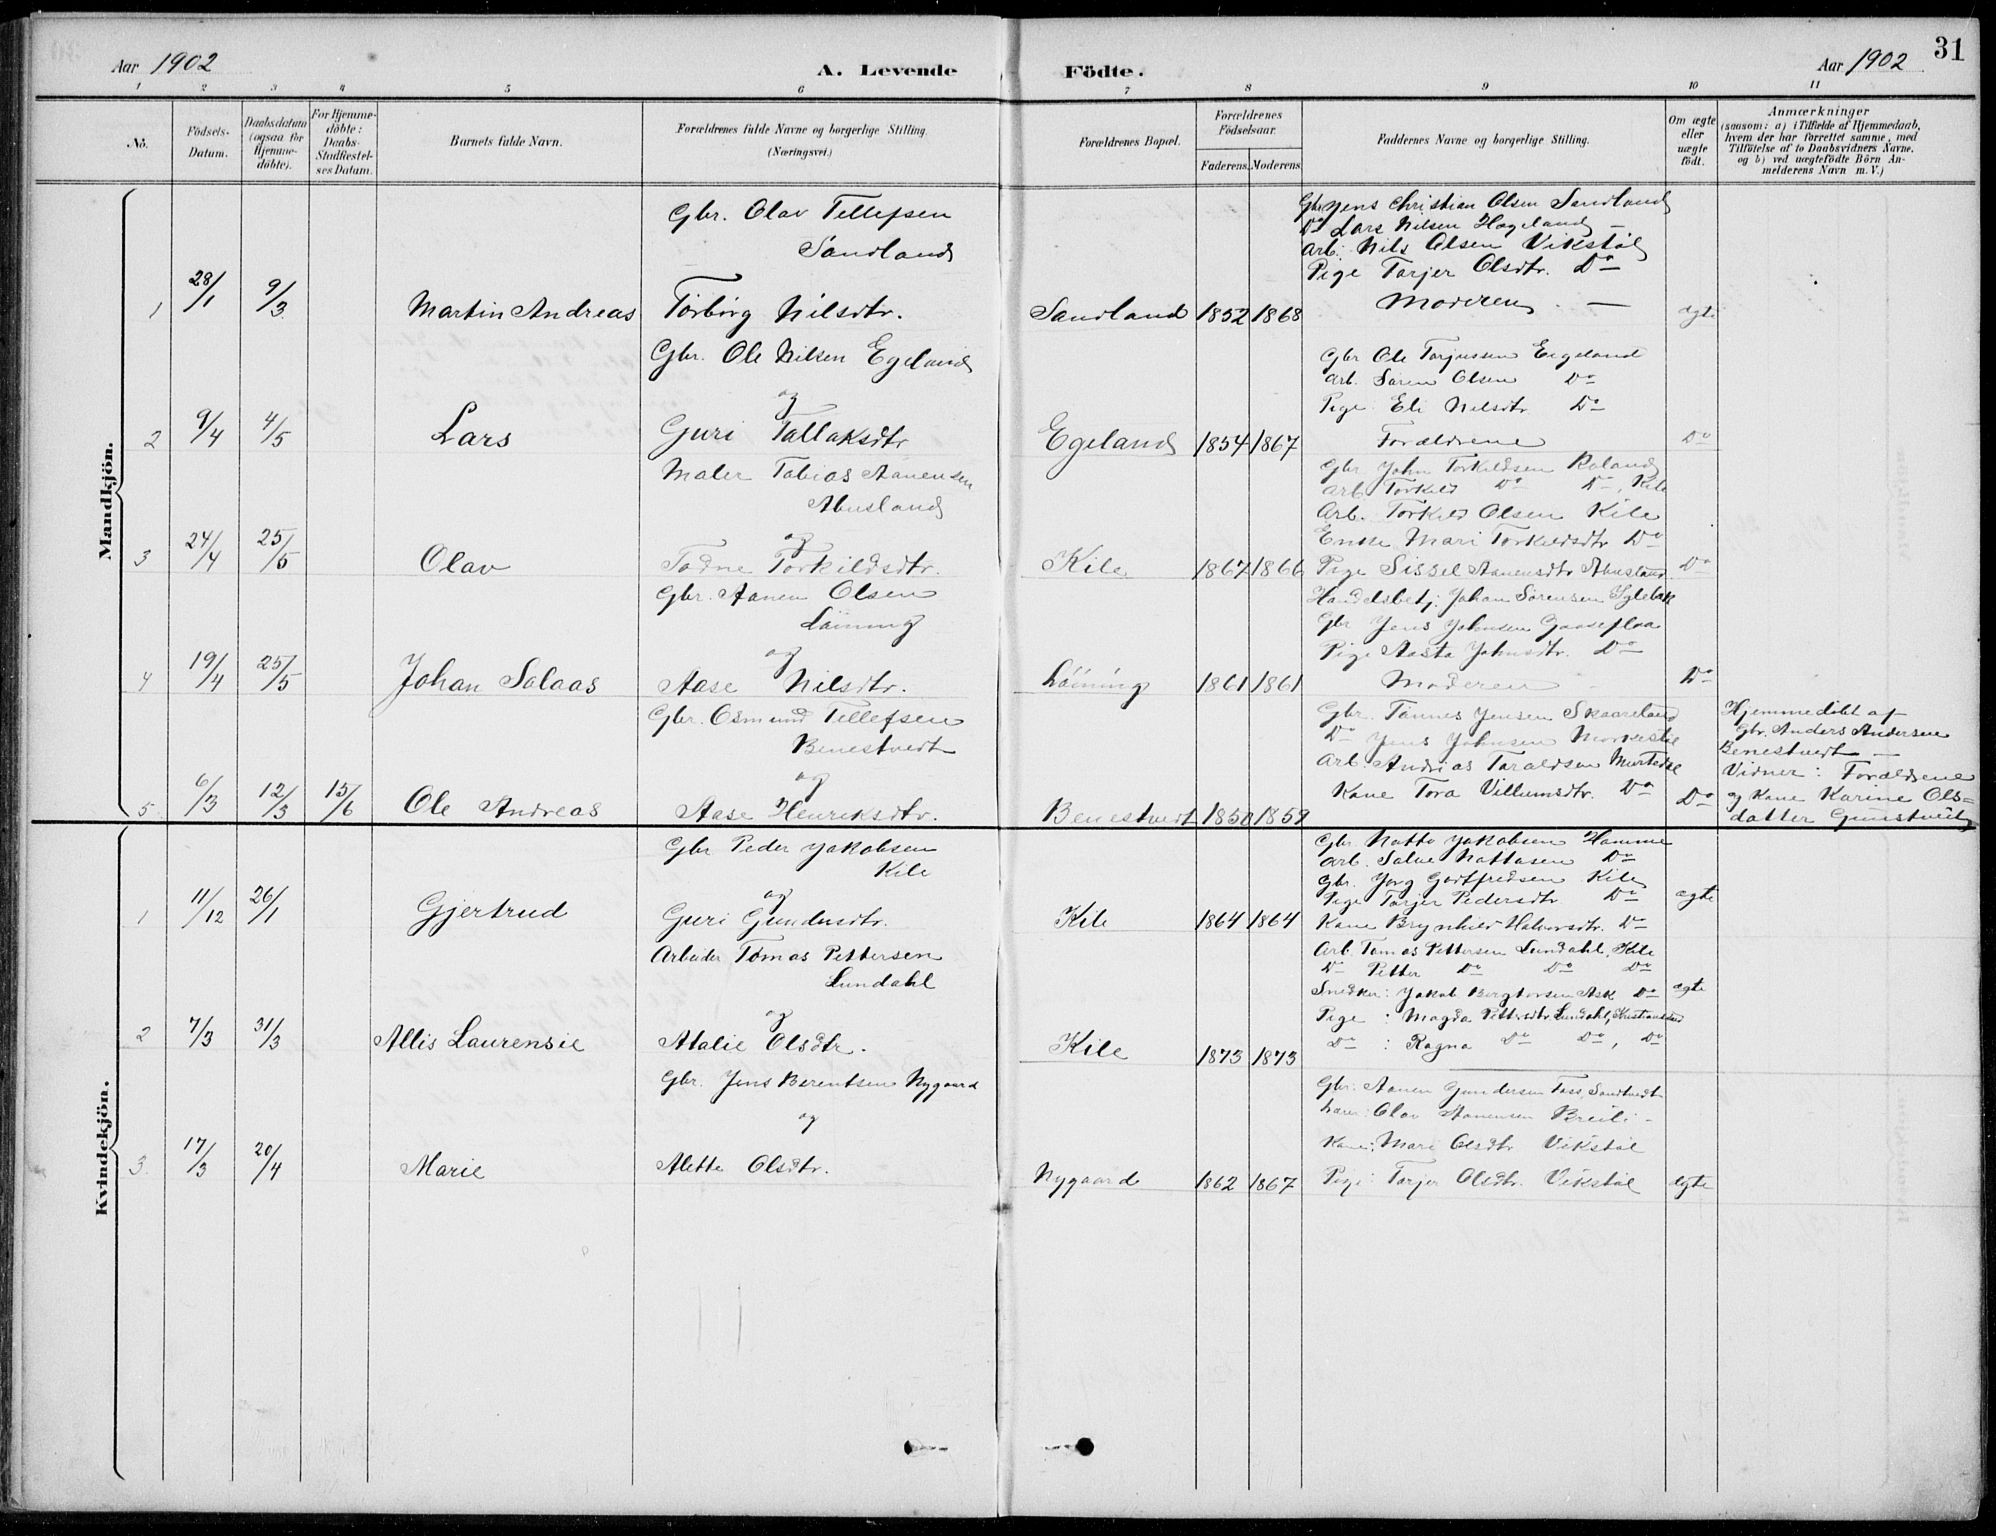 Aar 1902
A. Levende
Födte.
Aar 1902
31
1 2 3 4 5 6 7 8 9 10 11
No.
Födsels-
Datum.
Daabsdatum
(ogsaa for
Hjemme-
döbte).
For Hjemme-
döbte:
Daabs-
Stadfæstel-
ses Datum.
Barnets fulde Navn.
Forældrenes fulde Navne og borgerlige Stilling.
(Næringsvei.)
Forældrenes Bopæl.
Forældrenes
Födselsaar.
Faderens. Moderens.
Faddernes Navne og borgerlige Stilling.
Om ægte
eller
uægte
födt.
Anmærkninger
(saasom: a) i Tilfælde af Hjemmedaab,
hvem der har forrettet samme, med
Tilföielse af to Daabsvidners Navne,
og b) ved uægtefödte Börn An-
melderens Navn m. V.)
Mandkjön.
Gbr. Olav Tellefsen
Sandland
1 28/1 9/3 Martin Andreas Torborg Nilsdtr. Sandland 1852 1868
Gbr Jens Christian Olsen Sandland
Do Lars Nilsen Hægeland
Arb. Nils Olsen Vikstøl
Pige Tarjer Olsdtr. Do
Moderen
ægte
Gbr. Ole Nilsen Egeland
og
2 9/4 4/5 Lars Guri Tallaksdtr Egeland 1854 1867
Gbr Ole Tarjussen Eigeland
Arb. Sören Olsen Do
Pige Eli Nilsdtr. Do
Forældrene
Do
Maler Tobias Aanensen
Abusland
og
3 24/4 25/5 Olav Todne Torkildsdtr. Kile 1867 1866
Gbr John Torkildsen Roland
Arb. Torkild Do Do, Kile
Arb. Torkild Olsen Kile
Enke Mari Torkildsdtr Do
Pige Sissel Aanensdtr Abusland
Do
Gbr. Aanen Olsen
Löining
og
4 19/4 25/5 Johan Salaas Aase Nilsdtr. Löining 1861 1861
Handelsbetj. Johan Sörensen Iglebæk
Gbr Jens Johnsen Gaaseflaa
Pige Aasta Johnsdtr. Do
Moderen
Do
Gbr. Osmund Tellefsen
Benestvedt
og
5. 6/3 12/3 15/6 Ole Andreas Aase Henriksdtr. Benestvedt 1850 1859
Gbr. Tönnes Jensen Skaareland
Do Jens Johnsen
Arb. Andrias Taraldsen
Kone Tora Villumsdtr. Do
Do
Hjemmedöbt af
Gbr. Anders Andersen
Benestvedt
Vidner: Forældrene
og Kone Karine Ols=
datter
Kvindekjön.
Gbr Peder Jakobsen
Kile
og
1 11/12 26/1 Gjertrud Guri Gundersdtr. Kile 1864 1864
Gbr. Natto Jakobsen Homme
Arb. Salve Nattosen Do
Gbr. Jörg Gottfredsen Kile
Pige Tarjer Pedersdtr Do
Kone Brynhild Halvorsdtr. Do
ægte
Arbeider Tomas Pettersen
Lundahl
og
2 7/3 31/3 Allis Laurensie Atalie Olsdtr. Kile 1873 1873
Arb. Tomas Pettersen Lundahl, Kile
Do Petter Do Do Do
Snedker: Jakob Bergtorsen Ask Do
Pige: Magda Pettersdtr Lundahl, Kristiansand
Do: Ragna Do Do, Do
ægte
Gbr. Jens Berentsen Nygaard
og
3. 17/3 20/4 Marie Alette Olsdtr. Nygaard 1862 1867
Gbr: Aanen Gundersen Foss, Sandtvedt
Olav Aanensen Breili
Kone: Mari Olsdtr Vikstöl
Pige: Tarjer Olsdtr. Vikstöl
ægte